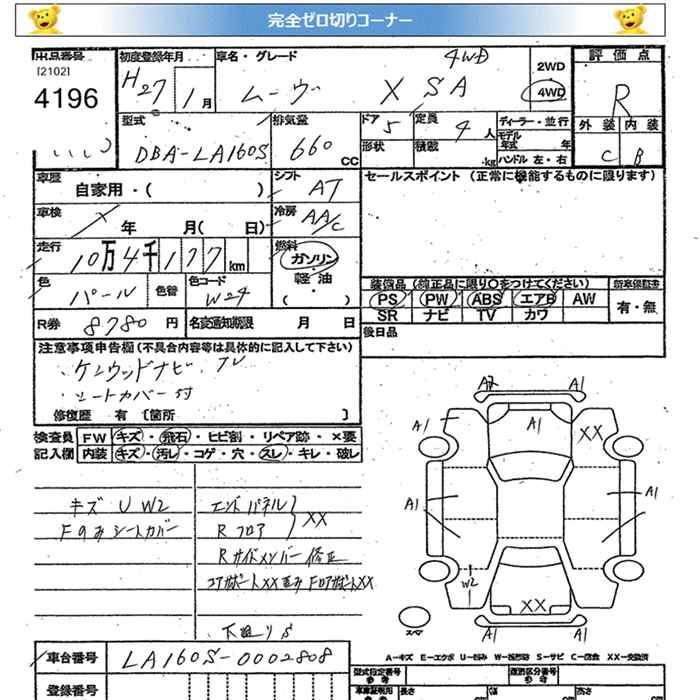 完全ゼロ切りコーナー
出品番号
[2102]
4196
初度登録年月
H27 1月
車名・グレード
ムーヴ X SA
4WD
2WD
4WD
評価点
R
外装 内装
C B
型式
DBA-LA160S
排気量
660 CC
ドア 5
形状
定員 4人
積載 -kg
ディーラー・並行
モデル年式 年
ハンドル 左・右
車歴
自家用・( )
シフト
AT
セールスポイント (正常に機能するものに限ります)
車検
年 月( 日)
冷房
AA/C
走行
10万4千177km
燃料
ガソリン
軽・油
( )
色
パール
色替
色コード
W24
装備品 (純正品に限り〇をつけてください)
PS PW ABS エアB AW
SR ナビ TV カワ
新車保証書
有・無
R券 8780円
名変通知期限 月 日
後日品
注意事項申告欄 (不具合内容等は具体的に記入して下さい)
・ケンウッドナビ
・シートカバー付
修復歴 有 [箇所 ]
検査員 FW キズ・飛石・ヒビ割・リペア跡・×要
記入欄 内装 キズ・汚レ・コゲ・穴・スレ・キレ・破レ
キズ U W2
Fのみシートカバー
エンドパネル
R フロア
XX
R サイドメンバー 修正
コアサポートXX 歪み FロアサポートXX
下廻りS
A2 A1
A1 A1 XX
A1 A1
W2
XX
スペア
A1 A1
A-キズ E-エクボ U-凹み W-波形跡 S-サビ C-腐食 XX-交換済
車台番号
LA160S-0002808
登録番号
型式指定番号
参考
類別区分番号
参考
車庫証明用
参考
長さ
幅
高さ